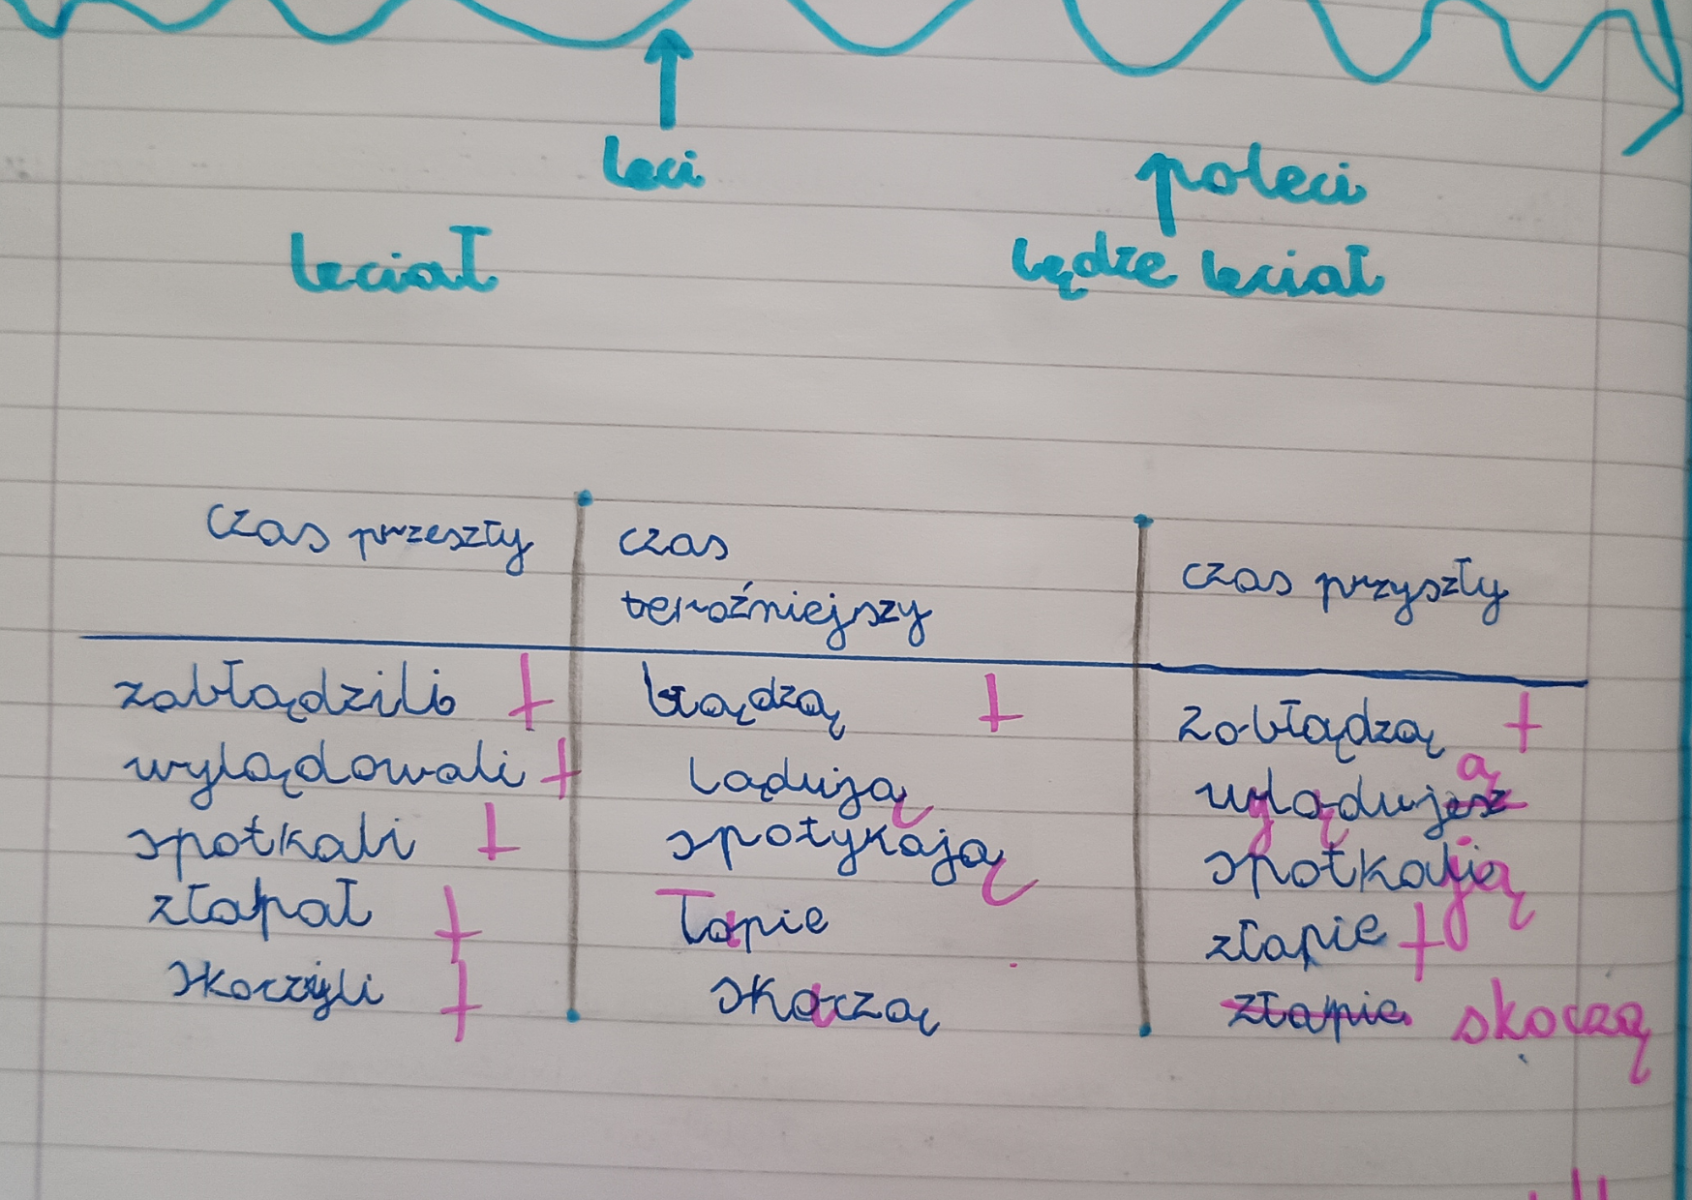 leci
poleci
leciał
będzie leciał
czas przeszły
czas
teraźniejszy
czas przyszły
zabłądzili + błądzą + zabłądzą +
wylądowali + lądują wylądujesz ą
spotkali + spotykają spotkają
złapał + łapie złapie +
skoczyli + skaczą złapie skoczą